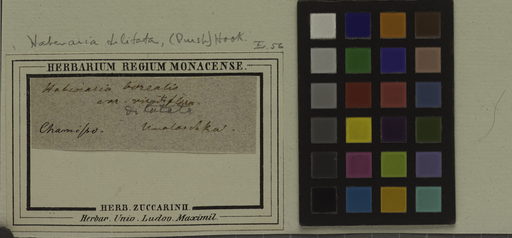 Habenaria dilitata, (Pursh) Hook.
L. 56
HERBARIUM REGIUM MONACENSE.
Habenaria borealis
var.
dilatata
Chamisso. Unalaschka.
HERB. ZUCCARINII.
Herbar. Univ. Ludov. Maximil.